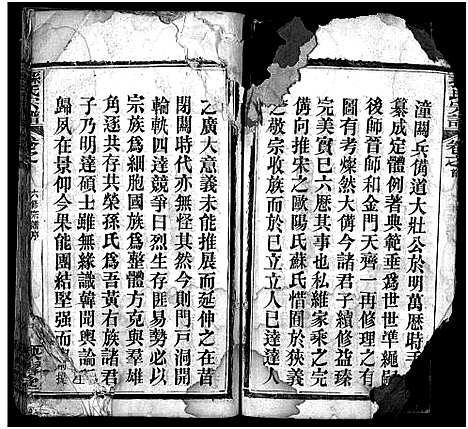 潼關兵備道大壯公於明萬曆時手
纂成定體例著典範垂為世世準繩
後師晉師和金門天齊一再修理之有
圖有考燦然大僃今諸君子續修益臻
完美實已六厯其事也私維家乘之完
僃向推宋之歐陽氏蘇氏惜囿於狹義
之敬宗收族而於已立立人已達達人
之廣大意義未能推展而延伸之在昔
閉關時代亦無怪其然今則門戶洞開
輪軼四達競爭曰烈生存匪易勢必以
宗族為細胞國族為整體方克與羣雄
角逐共存共榮孫氏為吾黃右族諸君
子乃明達碩士雖無緣識韓聞輿論
歸夙在景仰今果能團結堅强而
孫氏宗譜
卷之
六修宗譜序